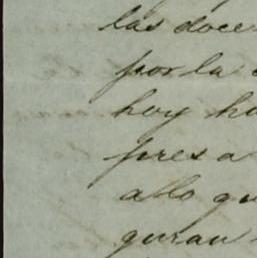 las doce
por la
hoy ha
presa
allo qu
guran